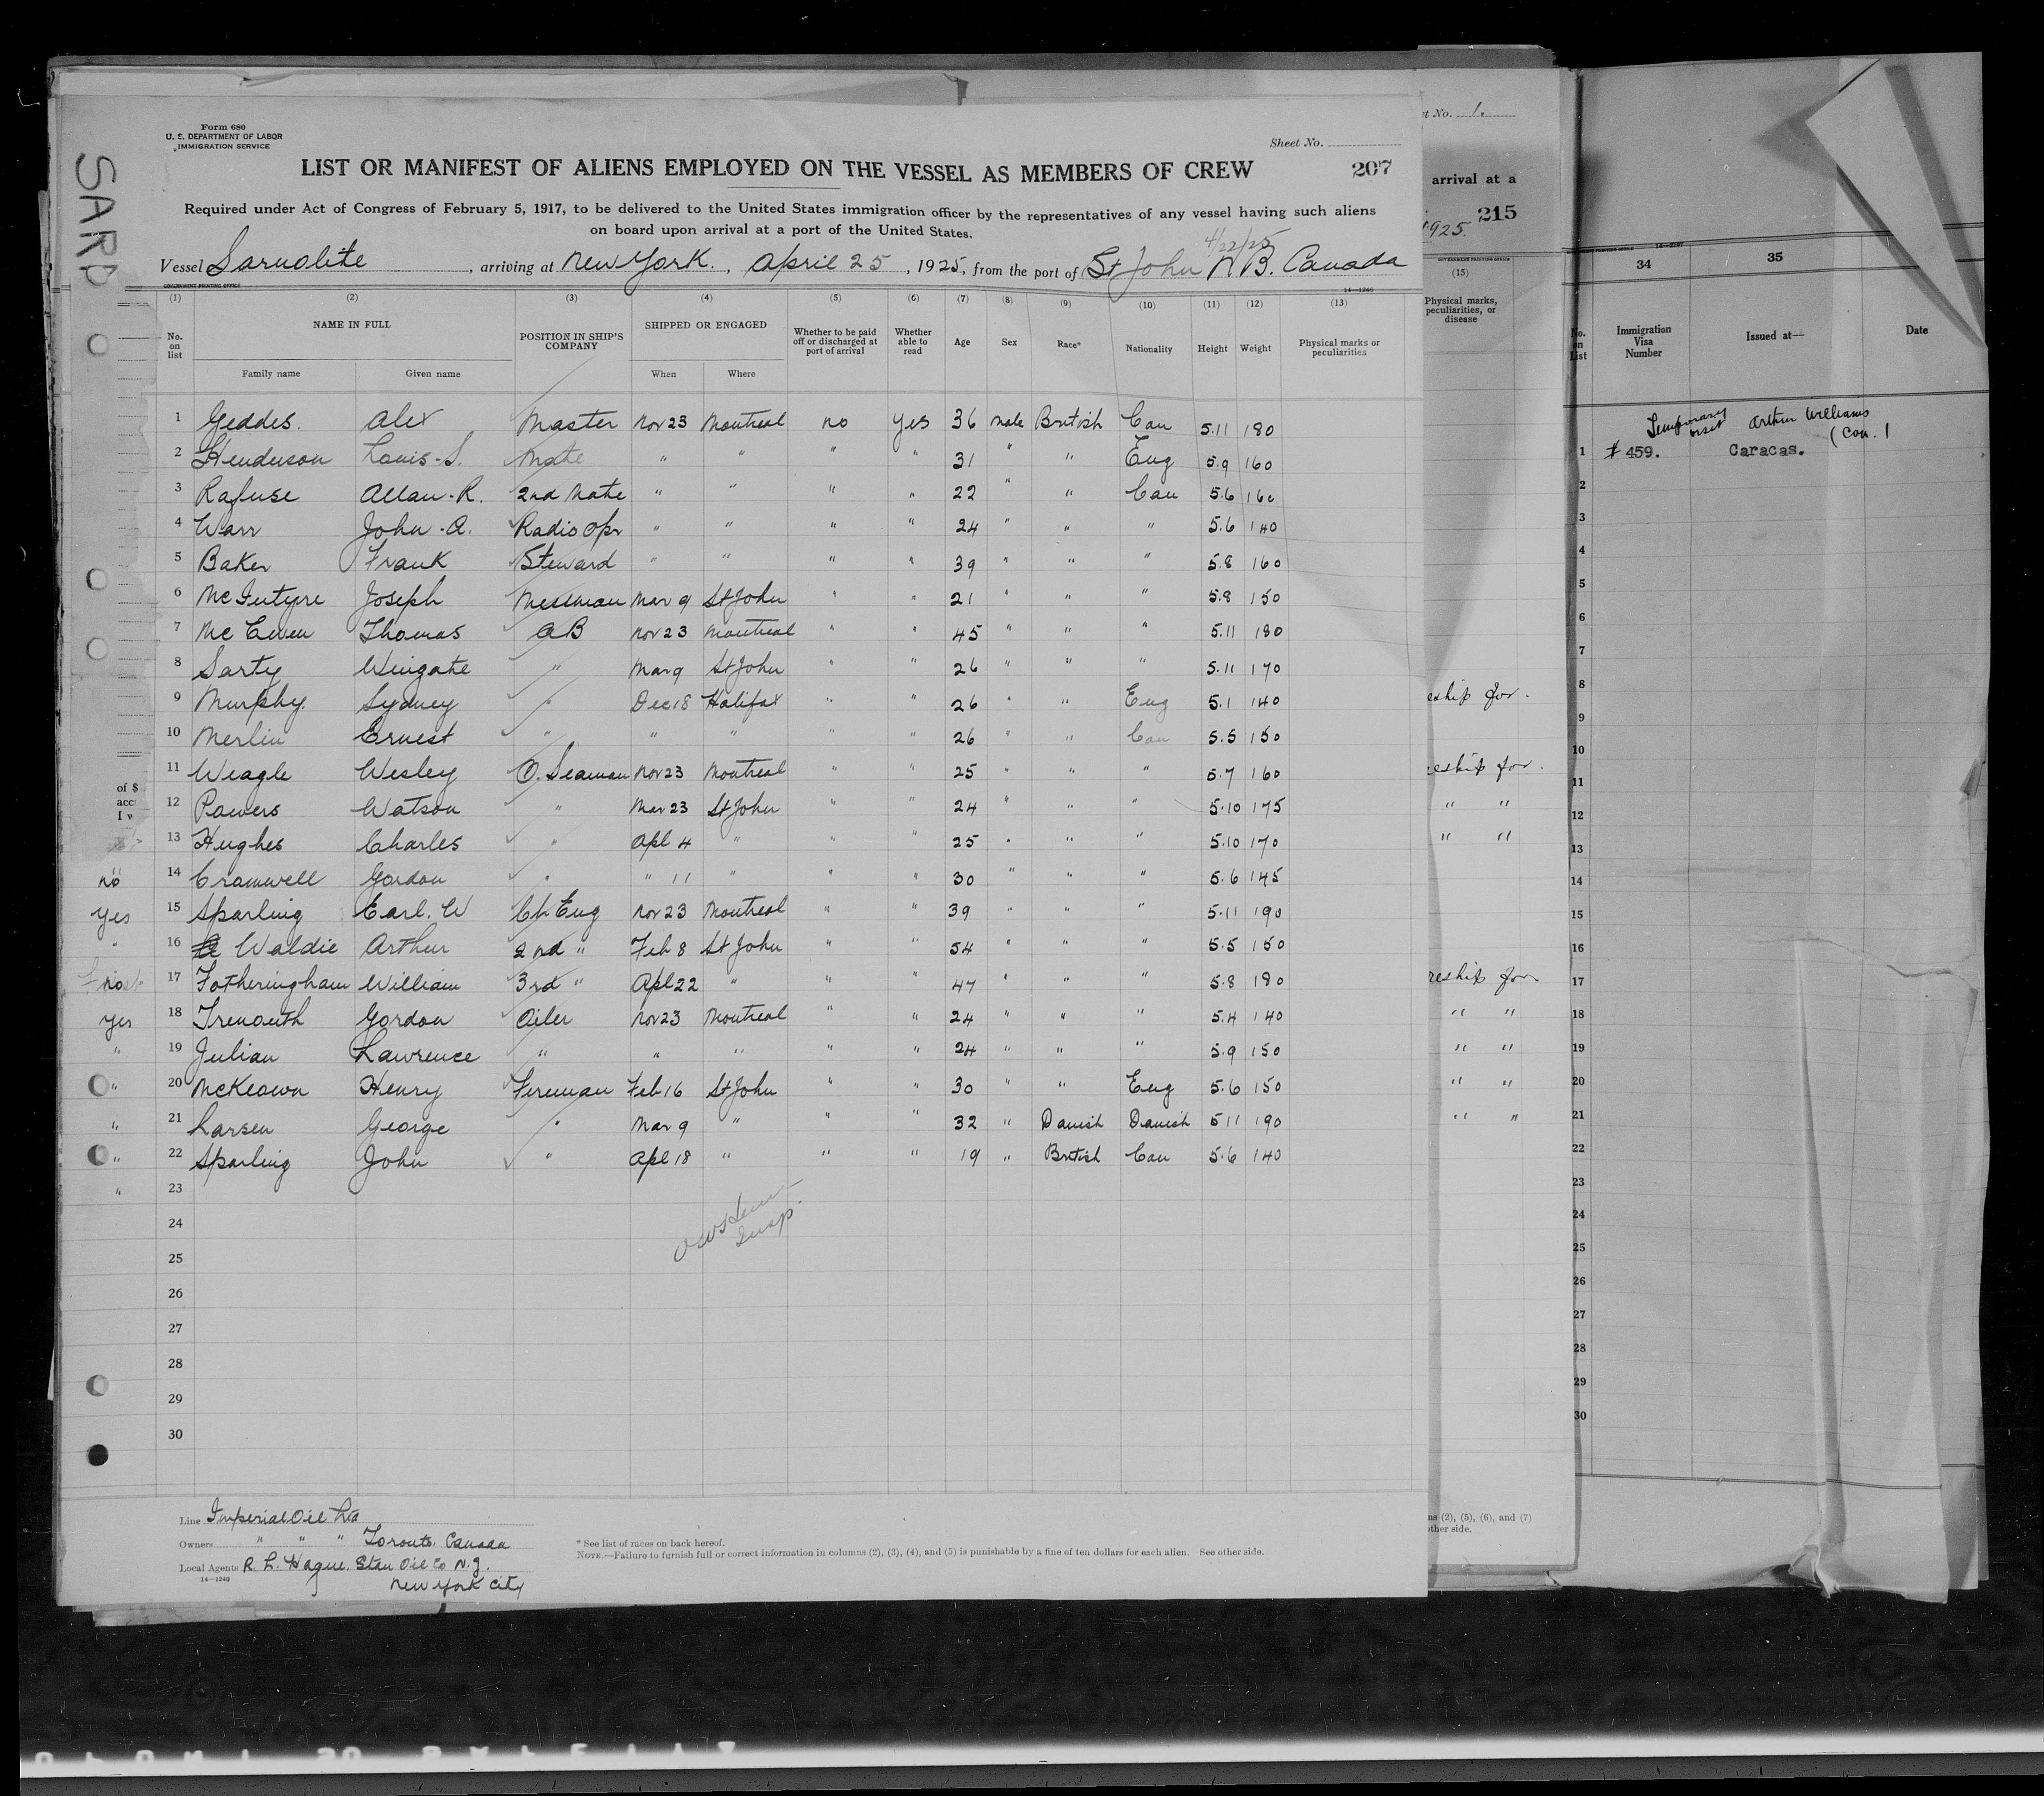 Form 680
U. S. DEPARTMENT OF LABOR
IMMIGRATION SERVICE
Sheet No.
LIST OR MANIFEST OF ALIENS EMPLOYED ON THE VESSEL AS MEMBERS OF CREW
207
Required under Act of Congress of February 5, 1917, to be delivered to the United States immigration officer by the representatives of any vessel having such aliens
on board upon arrival at a port of the United States.
4/22/25
Vessel Sarnolite, arriving at New York., April 25, 1925, from the port of St John N B. Canada
GOVERNMENT PRINTING OFFICE
14—1240
(1) (2) (3) (4) (5) (6) (7) (8) (9) (10) (11) (12) (13)
No. on list NAME IN FULL POSITION IN SHIP'S COMPANY SHIPPED OR ENGAGED Whether to be paid off or discharged at port of arrival Whether able to read Age Sex Race* Nationality Height Weight Physical marks or peculiarities
Family name Given name When Where
1 Geddes. Alex Master Nov 23 Montreal no Yes 36 Male British Can 5.11 180
2 Henderson Louis-S. Mate " " " " 31 " " Eng 5.9 160
3 Rafuse Allan-R. 2nd Mate " " " " 22 " " Can 5.6 160
4 Warr John-A. Radio Opr " " " " 24 " " " 5.6 140
5 Baker Frank Steward " " " " 39 " " " 5.8 160
6 McIntyre Joseph Messman Mar 9 St John " " 21 " " " 5.8 150
7 McEwen Thomas AB Nov 23 Montreal " " 45 " " " 5.11 180
8 Sarty Wingate " Mar 9 St John " " 26 " " " 5.11 170
9 Murphy. Sydney " Dec 18 Halifax " " 26 " " Eng 5.1 140
10 Merlin Ernest " " " " " 26 " " Can 5.5 150
11 Weagle Wesley O. Seaman Nov 23 Montreal " " 25 " " " 5.7 160
12 Powers Watson " Mar 23 St John " " 24 " " " 5.10 175
13 Hughes Charles " Apl 4 " " " 25 " " " 5.10 170
14 Cromwell Gordon " " 11 " " " 30 " " " 5.6 145
15 Sparling Earl. W Ch Eng Nov 23 Montreal " " 39 " " " 5.11 190
16 Waldie Arthur 2nd " Feb 8 St John " " 54 " " " 5.5 150
17 Fotheringham William 3rd " Apl 22 " " " 47 " " " 5.8 180
18 Tremouth Gordon Oiler Nov 23 Montreal " " 24 " " " 5.4 140
19 Julian Lawrence " " " " " 24 " " " 5.9 150
20 McKeown Henry Fireman Feb 16 St John " " 30 " " Eng 5.6 150
21 Larsen George " Mar 9 " " " 32 " Danish Danish 5 11 190
22 Sparling John " Apl 18 " " " 19 " British Can 5.6 140
23
24
25
26
27
28
29
30
Insp.
Line Imperial Oil Ltd
Owners " " " Toronto. Canada
Local Agents R. L. Hague. Stan Oil Co N.J.
14—1240
New York City
* See list of races on back hereof.
NOTE.—Failure to furnish full or correct information in columns (2), (3), (4), and (5) is punishable by a fine of ten dollars for each alien. See other side.
SARD
of $
acc
I v
no
Yes
"
no
Yes
"
"
"
"
"
t No. 1.
arrival at a
215
1925.
GOVERNMENT PRINTING OFFICE
(15)
Physical marks,
peculiarities, or
disease
eship for.
eship for.
" "
" "
reship for
" "
" "
" "
" "
ns (2), (5), (6), and (7)
ther side.
34 35
No. on List Immigration Visa Number Issued at— Date
Temporary visit Arthur Williams
(Con.)
1 # 459. Caracas.
2
3
4
5
6
7
8
9
10
11
12
13
14
15
16
17
18
19
20
21
22
23
24
25
26
27
28
29
30